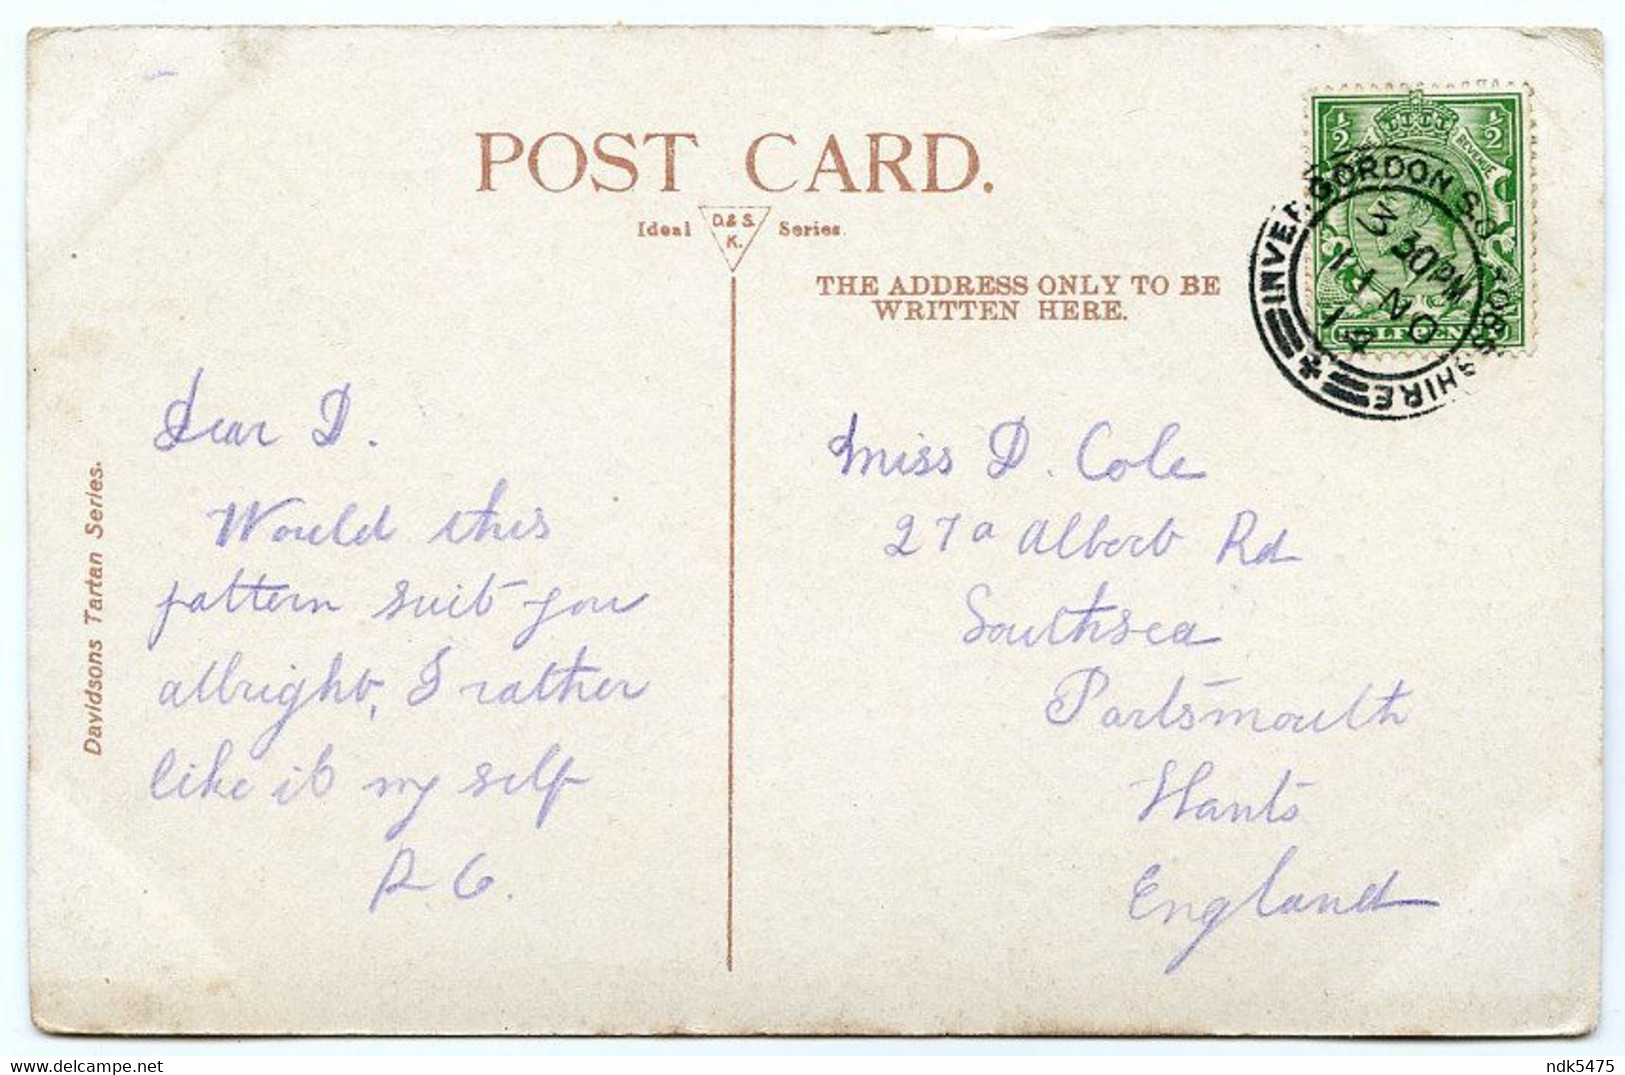 POST CARD.
Ideal D.&S. K. Series.
THE ADDRESS ONLY TO BE
WRITTEN HERE.
Davidsons Tartan Series.
Dear D.
Would this
pattern suit you
allright, I rather
like it my self
R. G.
Miss D. Cole
27a Albert Rd
Southsea
Portsmouth
Hants
England
½ ½
REVENUE
INVERGORDON S.O. ROSS-SHIRE
3 30PM
NO
14
ndk5475